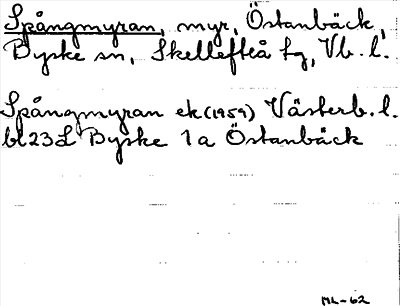 Spångmyran, myr, Östanbäck,
Byske sn, Skellefteå tg, Vb. l.
Spångmyran ek (1959) Västerb. l.
bl 23L Byske 1a Östanbäck
ML-62